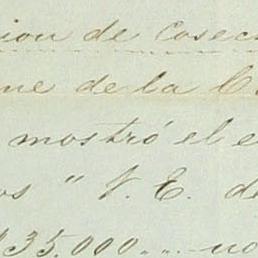 ion de Cosec
ne de la C
mostró el e
os " V. E. de
$35.000...no